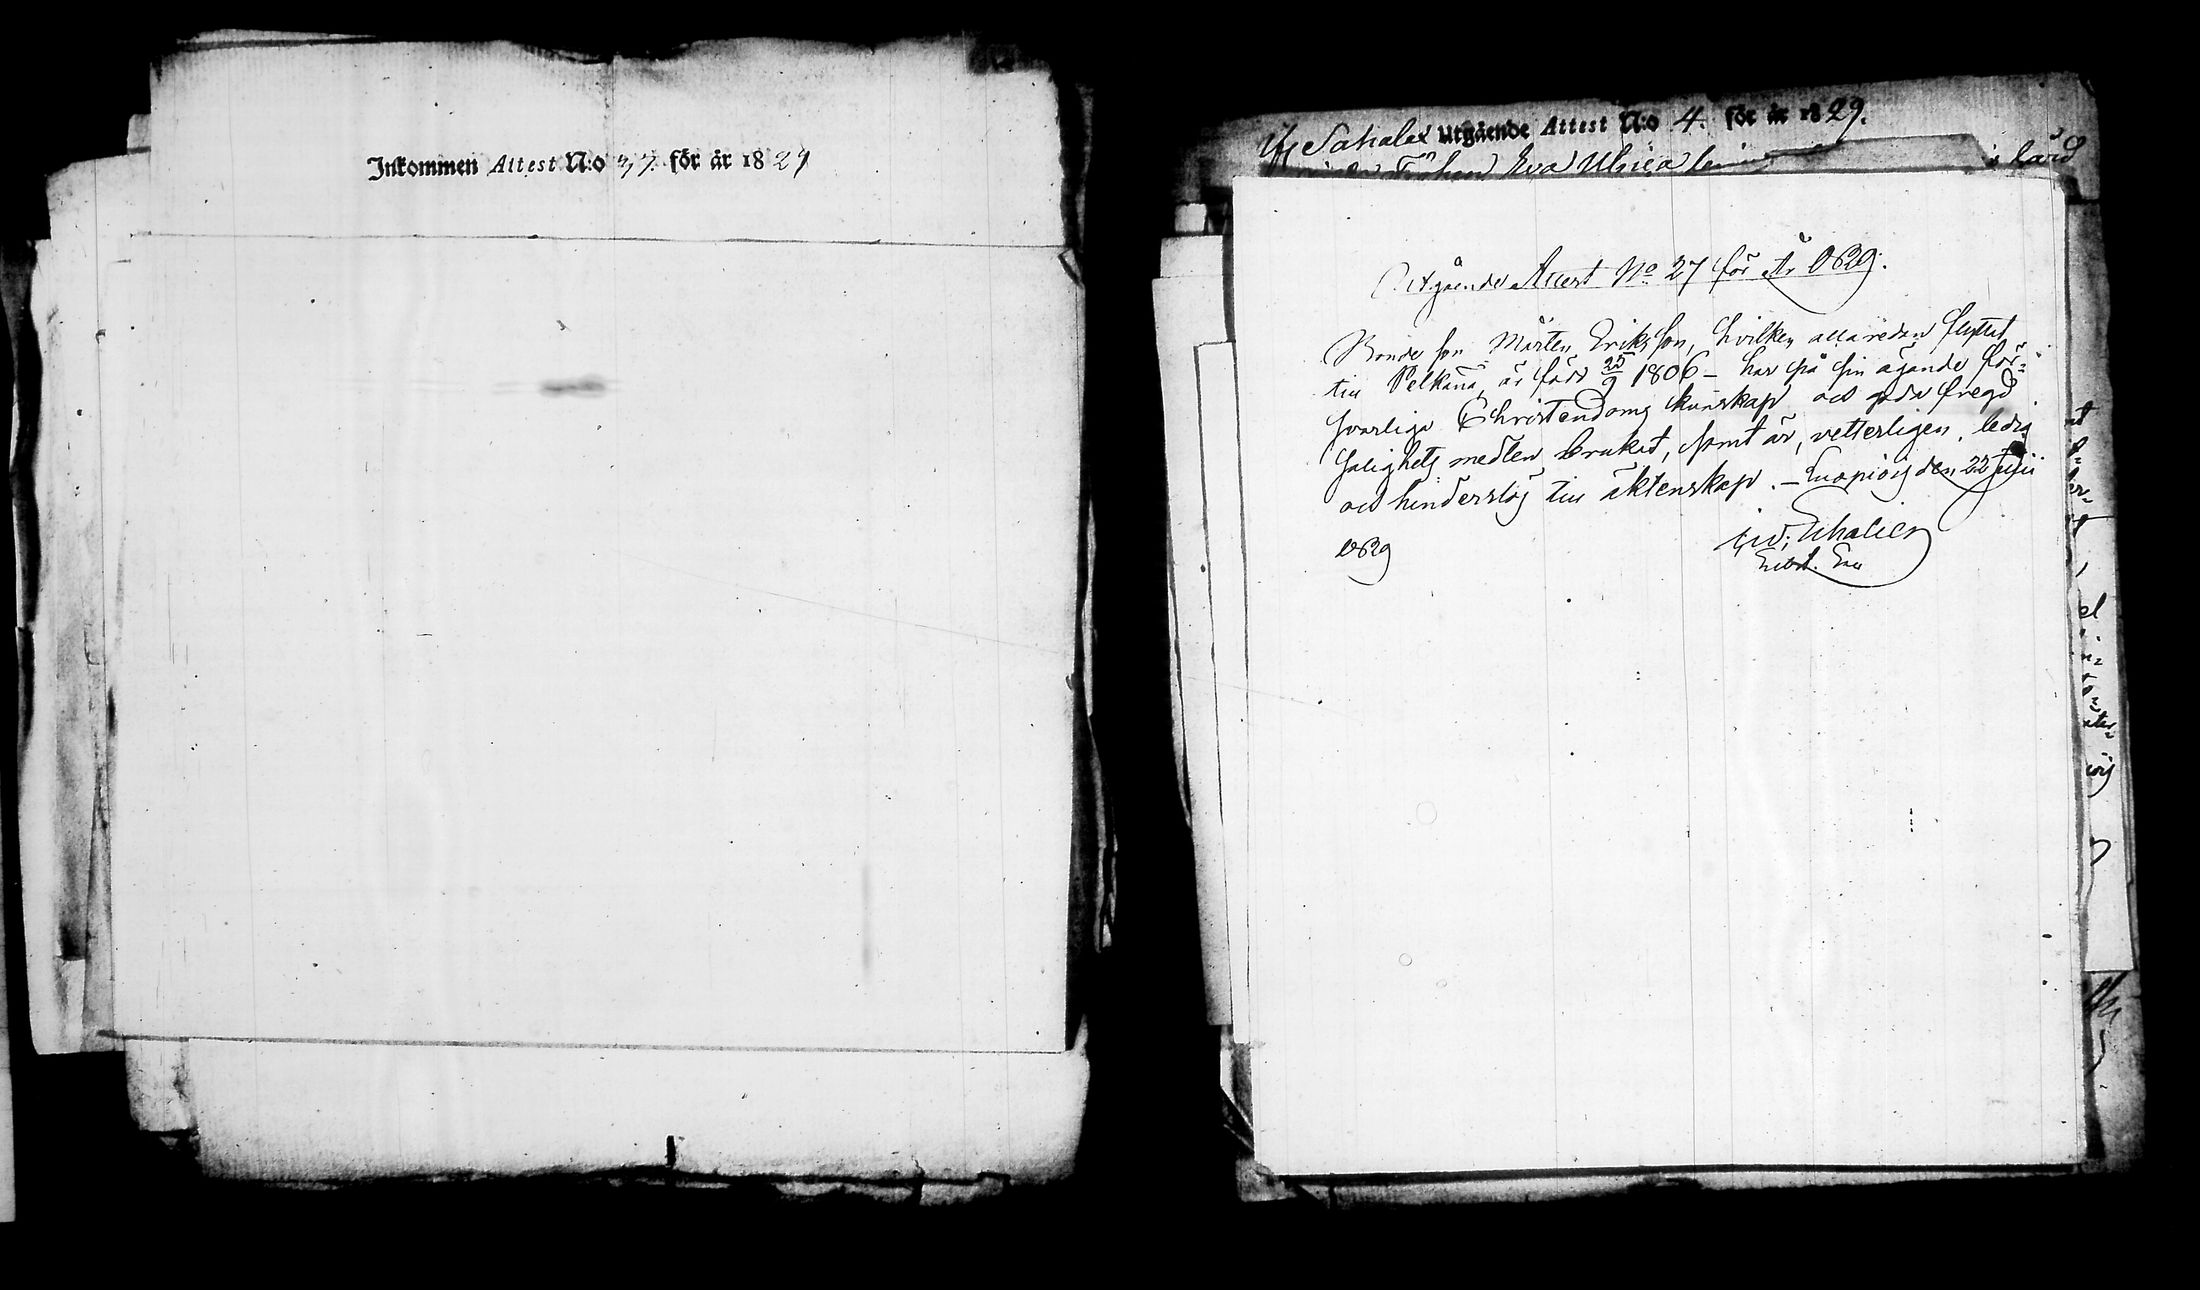 Inkommen Attest N:o 37. för år 1829
Utgående Attest N:o 4. för år 1829.
Sahalax
Eva Ulrica
Utgående Attest No 27 för År 1829.
Bonde son Mårten Eriksson, hvilken allaredan flyttat
till Pelkäna, är född 25/9 1806 – har på sin ägande för-
svarliga Christendoms kunskap och goda fregd
salighets medlen brukat, samt är, vetterligen, ledig
och hinderslös till äktenskap. – Luopiois den 22 Julii
1829